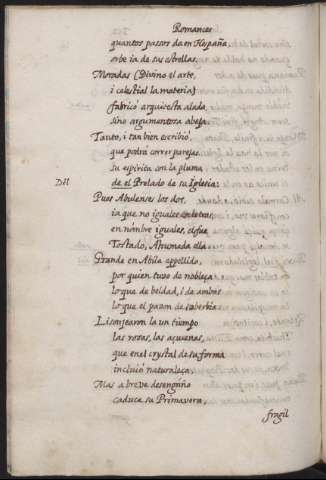 Romances
quantos passos da en España,
orbe ia de sus estrellas.
Moradas (Divino el arte,
i celestial la materia)
fabricó arquitecta alada,
sino argumentosa abeja.
Tanto, i tan bien escribió,
que podrá correr parejas
su espiritu con la pluma
Del de el Prelado de su Iglesia:
Pues Abulenses los dos,
ia que no iguales en letras,
en nombre iguales, el fue
Tostado, Ahumada ella.
Grande en Abila appellido,
por quien tuvo de nobleza
lo que de beldad, i de ambas
lo que el pavon de soberbia
Lisonjearon la un tiempo
las rosas, las açucenas,
que en el crystal de su forma
incluió naturaleza.
Mas a breve desengaño
caduca su Primavera,
fragil